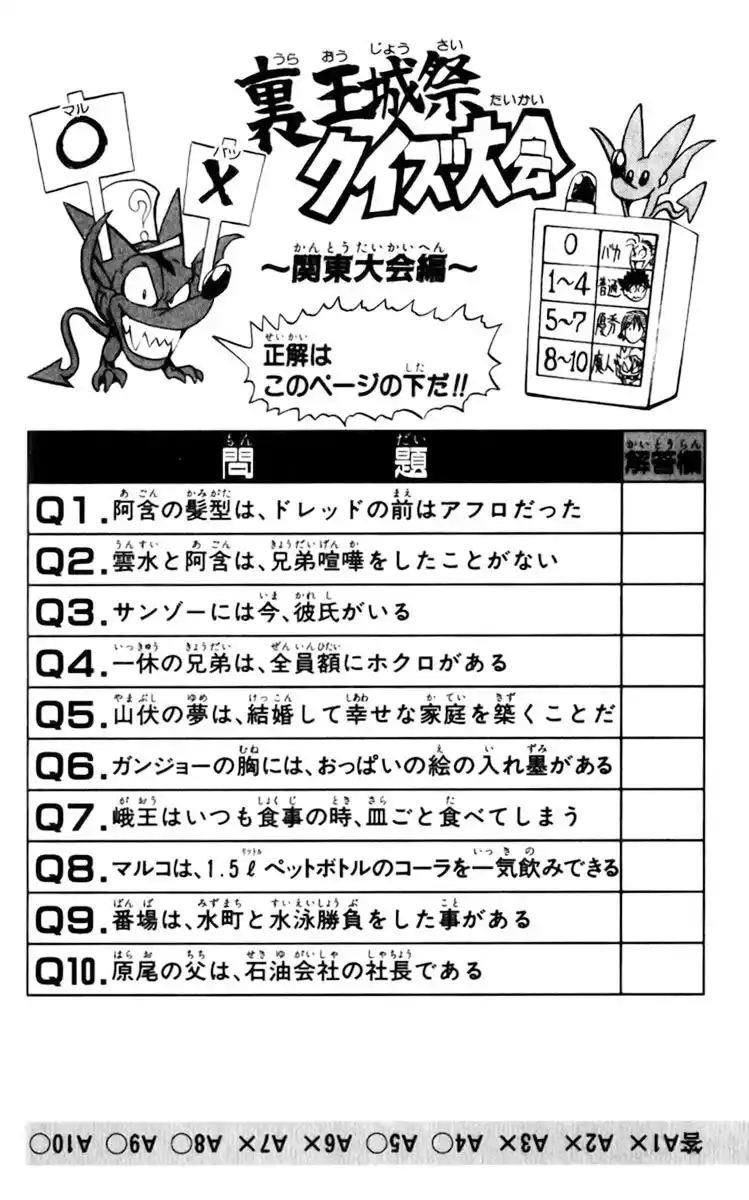 裏王城祭
クイズ大会
～関東大会編～
マル
○
バツ
×
?
正解は
このページの下だ!!
0 バカ
1～4 普通
5～7 優秀
8～10 魔人
問題 解答欄
Q1.阿含の髪型は、ドレッドの前はアフロだった
Q2.雲水と阿含は、兄弟喧嘩をしたことがない
Q3.サンゾーには今、彼氏がいる
Q4.一休の兄弟は、全員額にホクロがある
Q5.山伏の夢は、結婚して幸せな家庭を築くことだ
Q6.ガンジョーの胸には、おっぱいの絵の入れ墨がある
Q7.峨王はいつも食事の時、皿ごと食べてしまう
Q8.マルコは、1.5ℓペットボトルのコーラを一気飲みできる
Q9.番場は、水町と水泳勝負をした事がある
Q10.原尾の父は、石油会社の社長である
答A1× A2× A3× A4○ A5○ A6× A7× A8○ A9○ A10○